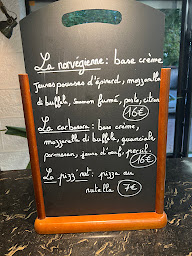 La norvégienne : base crème
Jeunes pousses d'épinard, mozzarella
di buffle, saumon fumé, pesto, citron
16€
La carbonara : base crème,
mozzarella di buffle, guanciale
parmesan, jaune d'œuf, persil.
16€
La pizz'nut : pizza au
nutella 7€